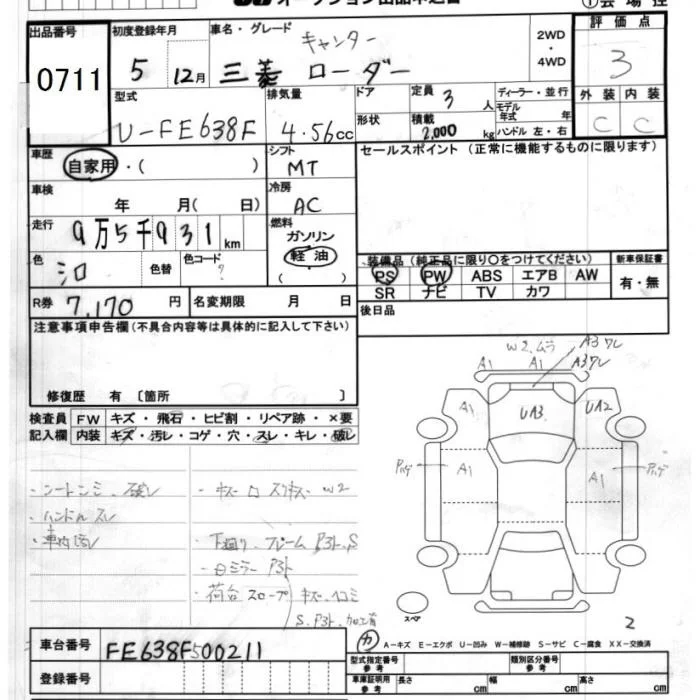 オークション出品申込書
①会場控
出品番号
0711
初度登録年月
5 12月
車名・グレード
キャンター
三菱 ローダー
2WD
・
4WD
評価点
3
型式
U-FE638F
排気量
4.56cc
ドア
形状
定員 3 人
積載 2,000 kg
ディーラー・並行
モデル年式 年
ハンドル 左・右
外装 内装
C C
車歴
自家用・( )
シフト
MT
セールスポイント(正常に機能するものに限ります)
車検
年 月( 日)
冷房
AC
走行
9万5千931km
燃料
ガソリン
軽油
( )
色
シロ
色替
色コード
?
装備品(純正品に限り○をつけてください)
新車保証書
PS PW ABS エアB AW
SR ナビ TV カワ
有・無
R券 7,170 円
名変期限 月 日
後日品
注意事項申告欄(不具合内容等は具体的に記入して下さい)
修復歴 有 〔箇所 〕
検査員
記入欄
FW キズ・飛石・ヒビ割・リペア跡・×要
内装 キズ・汚レ・コゲ・穴・スレ・キレ・破レ
W2.ムラ
A3ワレ
A1 A1 A3ワレ
A1 UA3 UA2
A1 A1
・ハンドルスレ
・車内汚レ
・下廻り、フレーム サビ、S
・荷台スロープ
スペア
2
A-キズ E-エクボ U-凹み W-補修跡 S-サビ C-腐食 XX-交換済
車台番号
FE638F500211
登録番号
型式指定番号
類別区分番号
車庫証明用参考
長さ cm
幅 cm
高さ cm